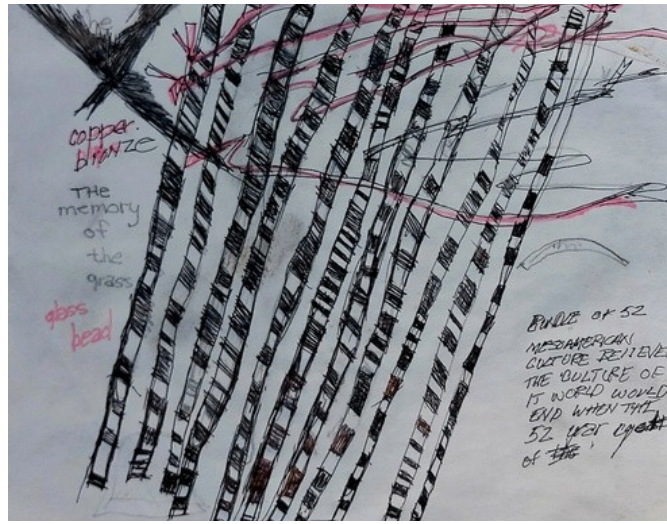 The
copper.
bronze
THE
memory
of
the
grass
glass
bead
BUNDLE OF 52
MESOAMERICAN
CULTURE BELIEVED
THE CULTURE OF
IT WORLD WOULD
END WHEN THE
52 year
of